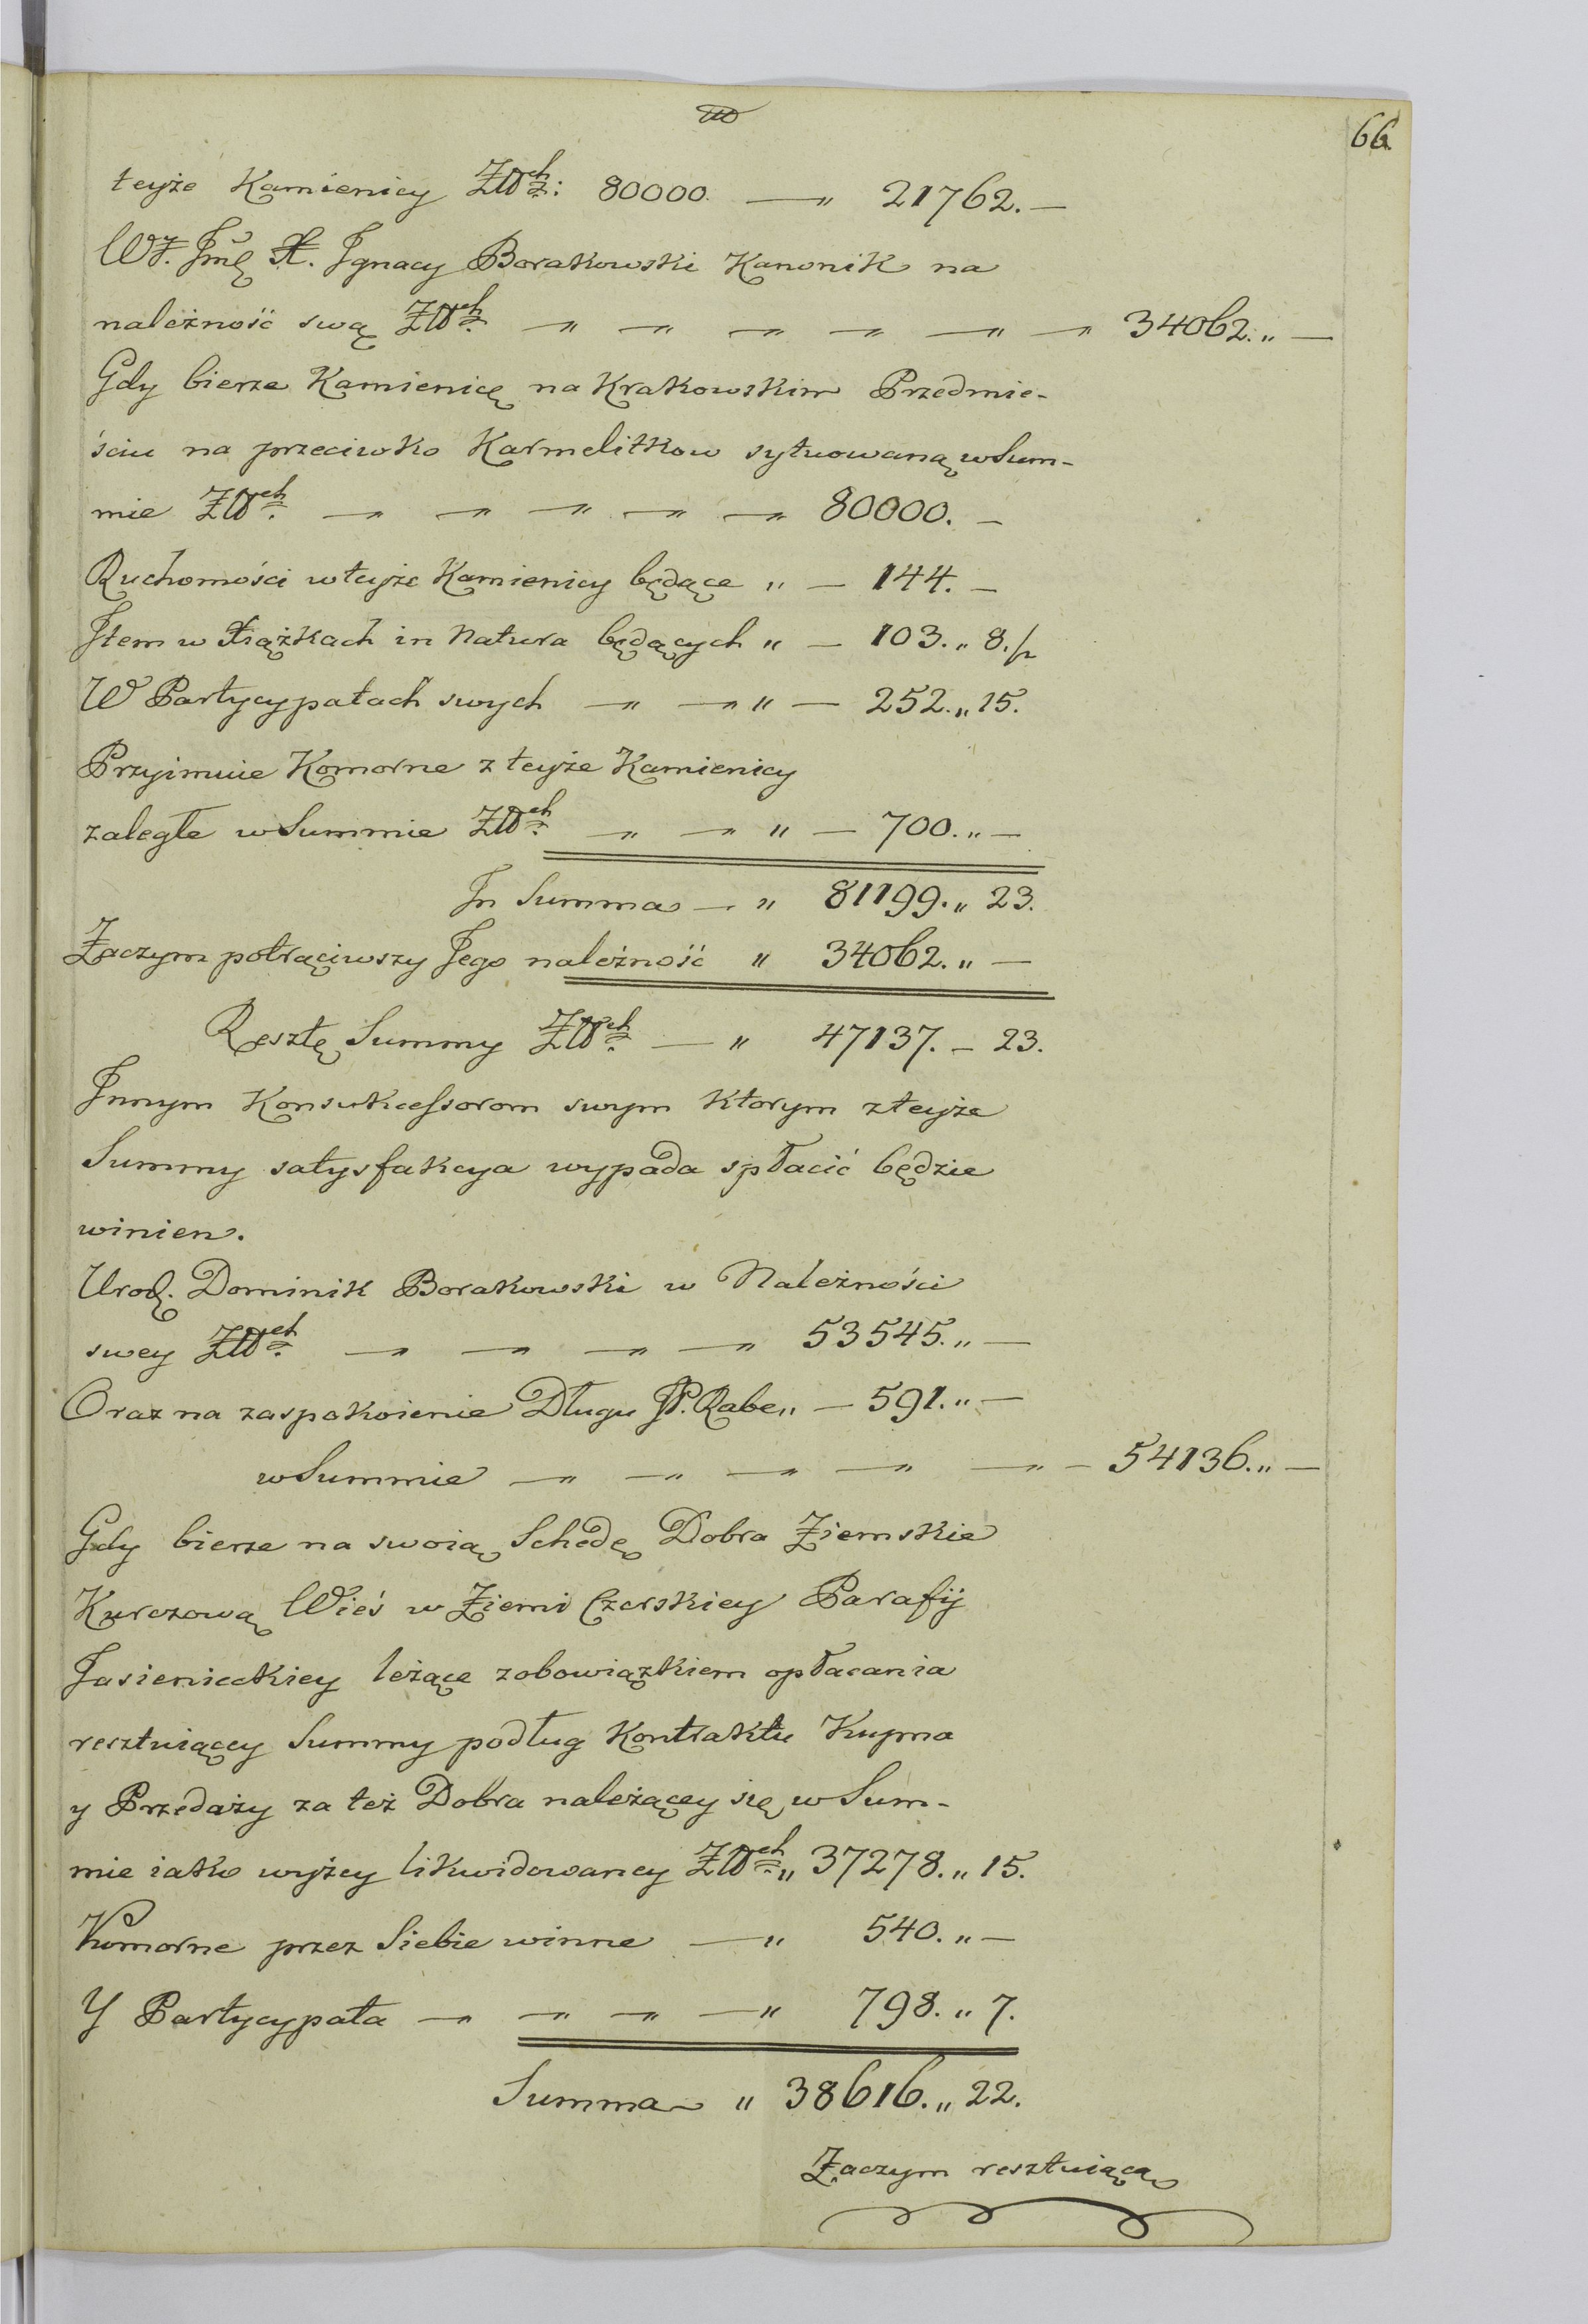 66.
teyże Kamienicy Złł<sup>ch</sup>: 80000. — „ 21762. —
WJ. Jmć X. Ignacy Borakowski Kanonik na
należność swą Złł<sup>ch</sup>. — „ — „ — „ — „ — „ — „ 34062. „ —
Gdy bierze Kamienicę na Krakowskim Przedmie-
ściu na przeciwko Karmelitkow sytuowaną w Sum-
mie Złł<sup>ch</sup>. — „ — „ — „ — „ — „ 80000. —
Ruchomości w teyże Kamienicy będące „ — 144. —
Item w Xiążkach in Natura będących „ — 103. „ 8.
W Partycypatach swych — „ — „ „ — 252. „ 15.
Przyimuie Komorne z teyże Kamienicy
zaległe w Summie Złł<sup>ch</sup>. — „ — „ „ — 700. „ —
In Summa — „ 81199. „ 23.
Zaczym potrąciwszy Jego należność „ 34062. „ —
Resztę Summy Złł<sup>ch</sup>. — „ 47137. — 23.
Innym Konsukcessorom swym ktorym z teyże
Summy satysfakcya wypada spłacić będzie
winien.
Urod. Dominik Borakowski w Należności
swey Złł<sup>ch</sup>. — „ — „ — „ — „ 53545. „ —
Oraz na zaspokoienie Długu JP. Rabe „ — 591. „ —
w Summie — „ — „ — „ — „ — „ — 54136. „ —
Gdy bierze na swoią Schedę Dobra Ziemskie
Kurczową Wieś w Ziemi Czerskiey Parafij
Jasienieckiey leżące z obowiązkiem opłacania
resztuiącey Summy podług Kontraktu Kupna
y Przedaży za też Dobra należącey się w Sum-
mie iako wyżey likwidowaney Złł<sup>ch</sup>. „ 37278. „ 15.
Komorne przez Siebie winne — „ 540. „ —
Y Partycypata — „ — „ — „ — „ 798. „ 7.
Summa „ 38616. „ 22.
Zaczym resztuiąca